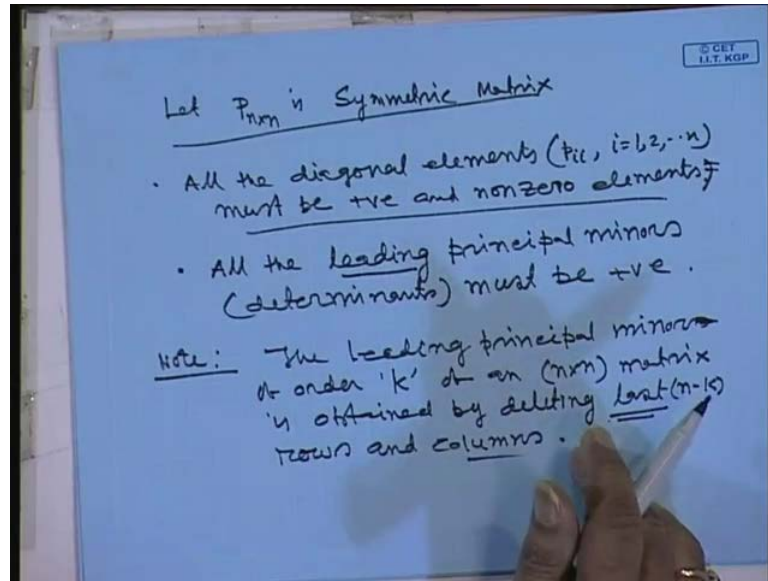 © CET
I.I.T. KGP
Let Pnxn is Symmetric Matrix
• All the diagonal elements (Pii, i=1,2,--n)
must be +ve and nonzero elements
• All the leading principal minors
(determinants) must be +ve.
Note: The leading principal minor
of order 'k' of an (nxn) matrix
is obtained by deleting last (n-k)
rows and columns.